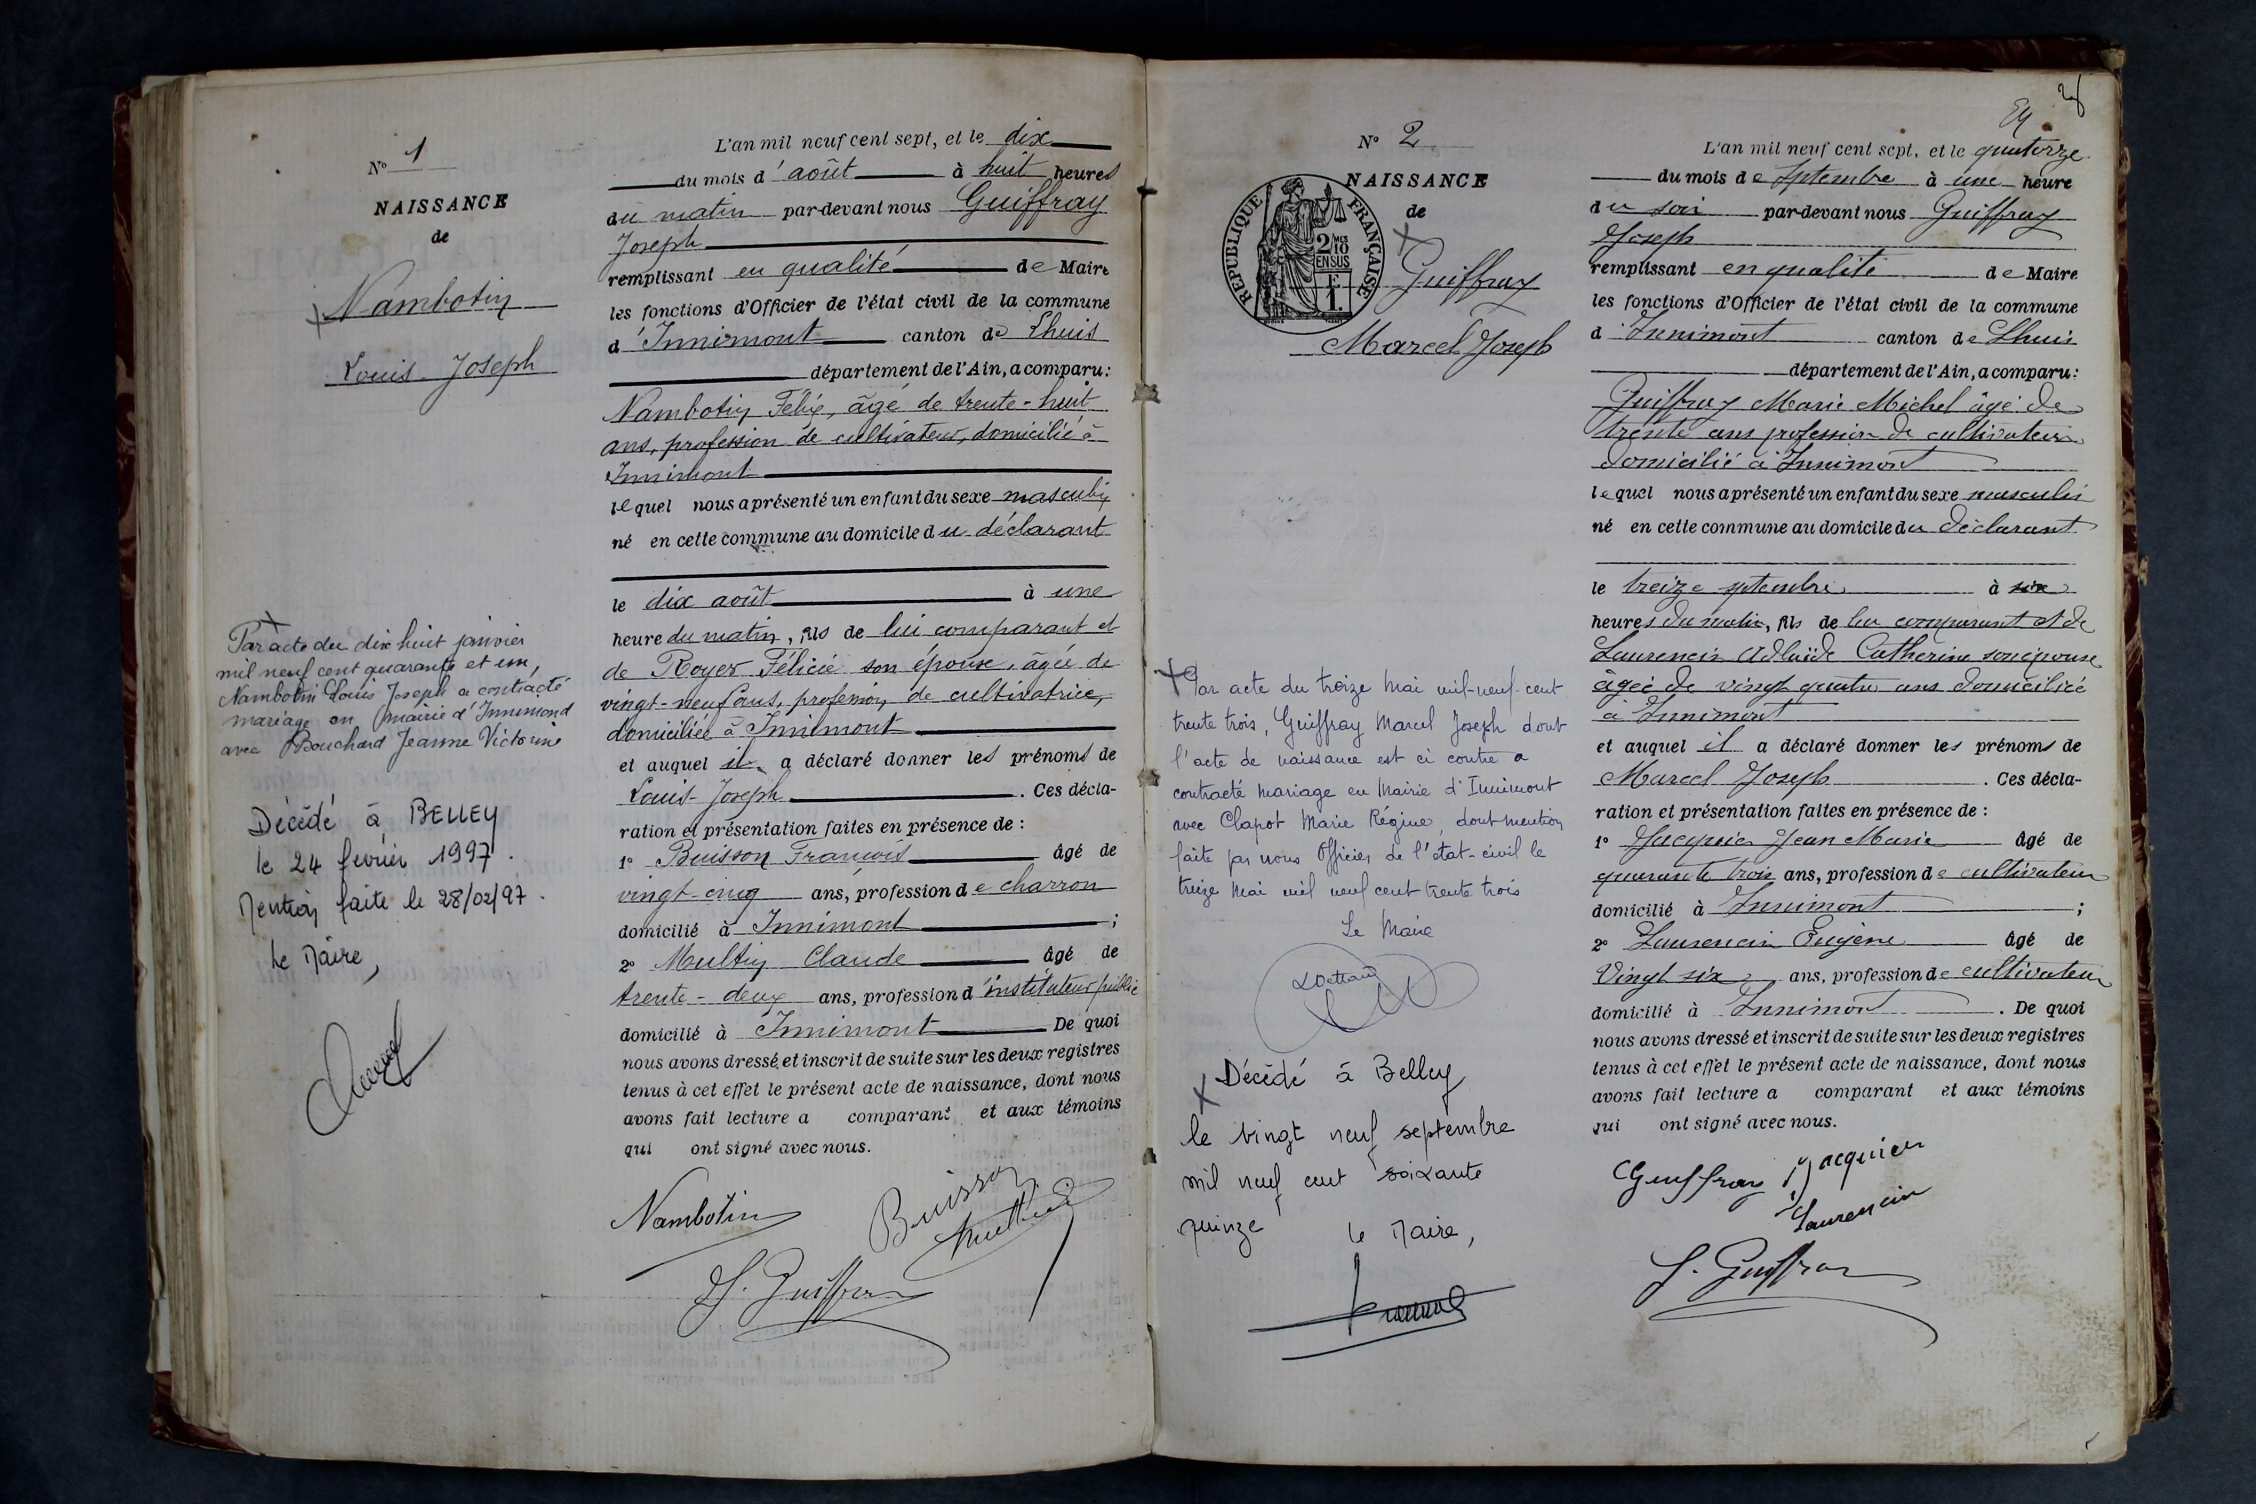 N° 1
NAISSANCE
de
Nambotin
Louis Joseph
Par acte du dix huit janvier
mil neuf cent quarante et un,
Nambotin Louis Joseph a contracté
mariage en mairie d'Innimond
avec Bouchard Jeanne Victorine
Décédé à BELLEY
le 24 février 1997.
Mention faite le 28/02/97.
Le Maire,
L'an mil neuf cent sept, et le dix
du mois d'août à huit heures
du matin par-devant nous Guiffray
Joseph
remplissant en qualité de Maire
les fonctions d'Officier de l'état civil de la commune
d'Innimont canton de Lhuis
département de l'Ain, a comparu:
Nambotin Félix, âgé de trente-huit
ans, profession de cultivateur, domicilié à
Innimont
lequel nous a présenté un enfant du sexe masculin
né en cette commune au domicile du déclarant
le dix août à une
heure du matin, fils de lui comparant et
de Royer Félicie son épouse, âgée de
vingt-neuf ans, profession de cultivatrice,
domiciliée à Innimont
et auquel il a déclaré donner les prénoms de
Louis-Joseph. Ces décla-
ration et présentation faites en présence de:
1° Buisson François âgé de
vingt-cinq ans, profession de charron
domicilié à Innimont;
2° Multin Claude âgé de
trente-deux ans, profession d'instituteur public
domicilié à Innimont De quoi
nous avons dressé et inscrit de suite sur les deux registres
tenus à cet effet le présent acte de naissance, dont nous
avons fait lecture a comparant et aux témoins
qui ont signé avec nous.
Nambotin Buisson Multin
J. Guiffray
N° 2
NAISSANCE
de
REPUBLIQUE FRANÇAISE
2/10 MES
EN SUS
F
1.
Guiffray
Marcel Joseph
Par acte du treize Mai mil-neuf-cent
trente trois, Guiffray Marcel Joseph dont
l'acte de naissance est ci contre a
contracté mariage en Mairie d'Innimont
avec Clapot Marie Régine, dont mention
faite par nous Officier de l'état-civil le
treize Mai mil neuf cent trente trois
Le Maire
Décédé à Belley
le vingt neuf septembre
mil neuf cent soixante
quinze le Maire,
L'an mil neuf cent sept, et le quatorze
du mois de Septembre à une heure
du soir par-devant nous Guiffray
Joseph
remplissant en qualité de Maire
les fonctions d'Officier de l'état civil de la commune
d'Innimont canton de Lhuis
département de l'Ain, a comparu:
Guiffray Marie Michel âgé de
trente ans profession de cultivateur
domicilié à Innimont
lequel nous a présenté un enfant du sexe masculin
né en cette commune au domicile du déclarant
le treize septembre à six
heures du matin, fils de lui comparant et de
Laurencin Adélaïde Catherine son épouse
âgée de vingt quatre ans domiciliée
à Innimont
et auquel il a déclaré donner les prénoms de
Marcel Joseph. Ces décla-
ration et présentation faites en présence de:
1° Jacquier Jean Marie âgé de
quarante trois ans, profession de cultivateur
domicilié à Innimont;
2° Laurencin Eugène âgé de
Vingt six ans, profession de cultivateur
domicilié à Innimont. De quoi
nous avons dressé et inscrit de suite sur les deux registres
tenus à cet effet le présent acte de naissance, dont nous
avons fait lecture a comparant et aux témoins
qui ont signé avec nous.
Guiffray Jacquier
Laurencin
J. Guiffray